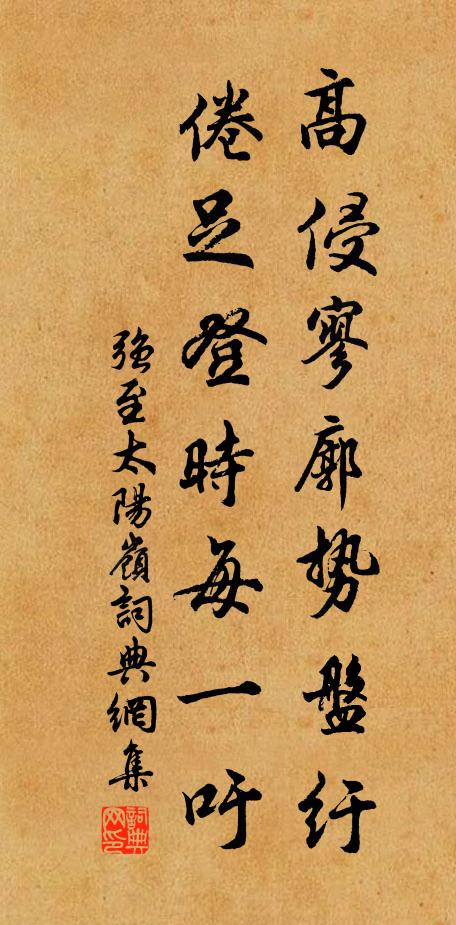 高侵寥廓势盤紆
倦足登時每一吁
強至太陽嶺詞典網集
詞典网印